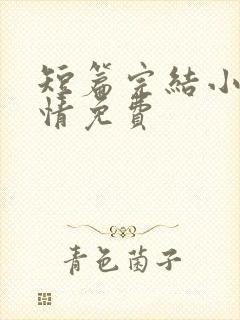 短篇完結小
情免費
青色菌子